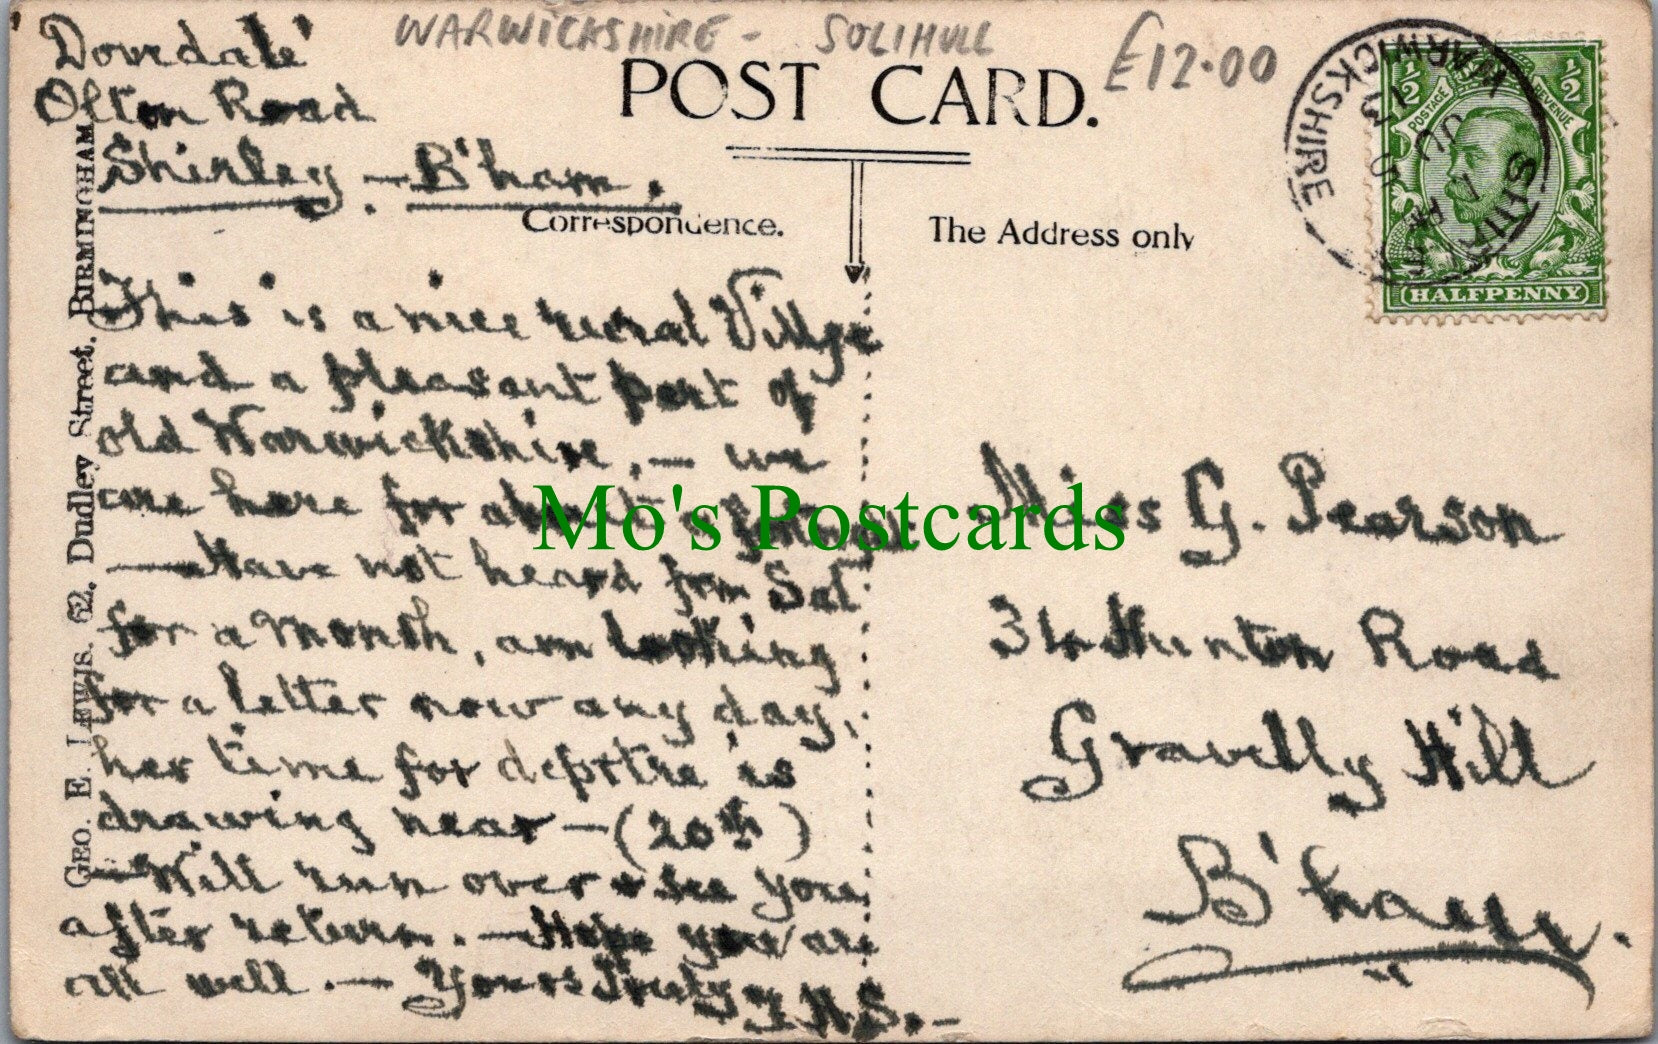 WARWICKSHIRE - SOLIHULL
£12.00
'Dovedale'
Olton Road
Shirley - B'ham.
POST CARD.
Correspondence.
The Address only
This is a nice rural Village
and a pleasant part of
old Warwickshire, - we
are here for about a
- Have not heard from Sal
for a month, am looking
for a letter now any day,
her time for deptre is
drawing near - (20th)
- Will run over & see you
after return. - Hope you are
all well. - Yours Truly
H.S. -
Miss G. Pearson
34 Hunton Road
Gravelly Hill
B'ham.
GEO. E. LEWIS. 62, Dudley Street, BIRMINGHAM.
SHIRLEY
WARWICKSHIRE
JU
13
1/2
1/2
POSTAGE
REVENUE
HALFPENNY
Mo's Postcards